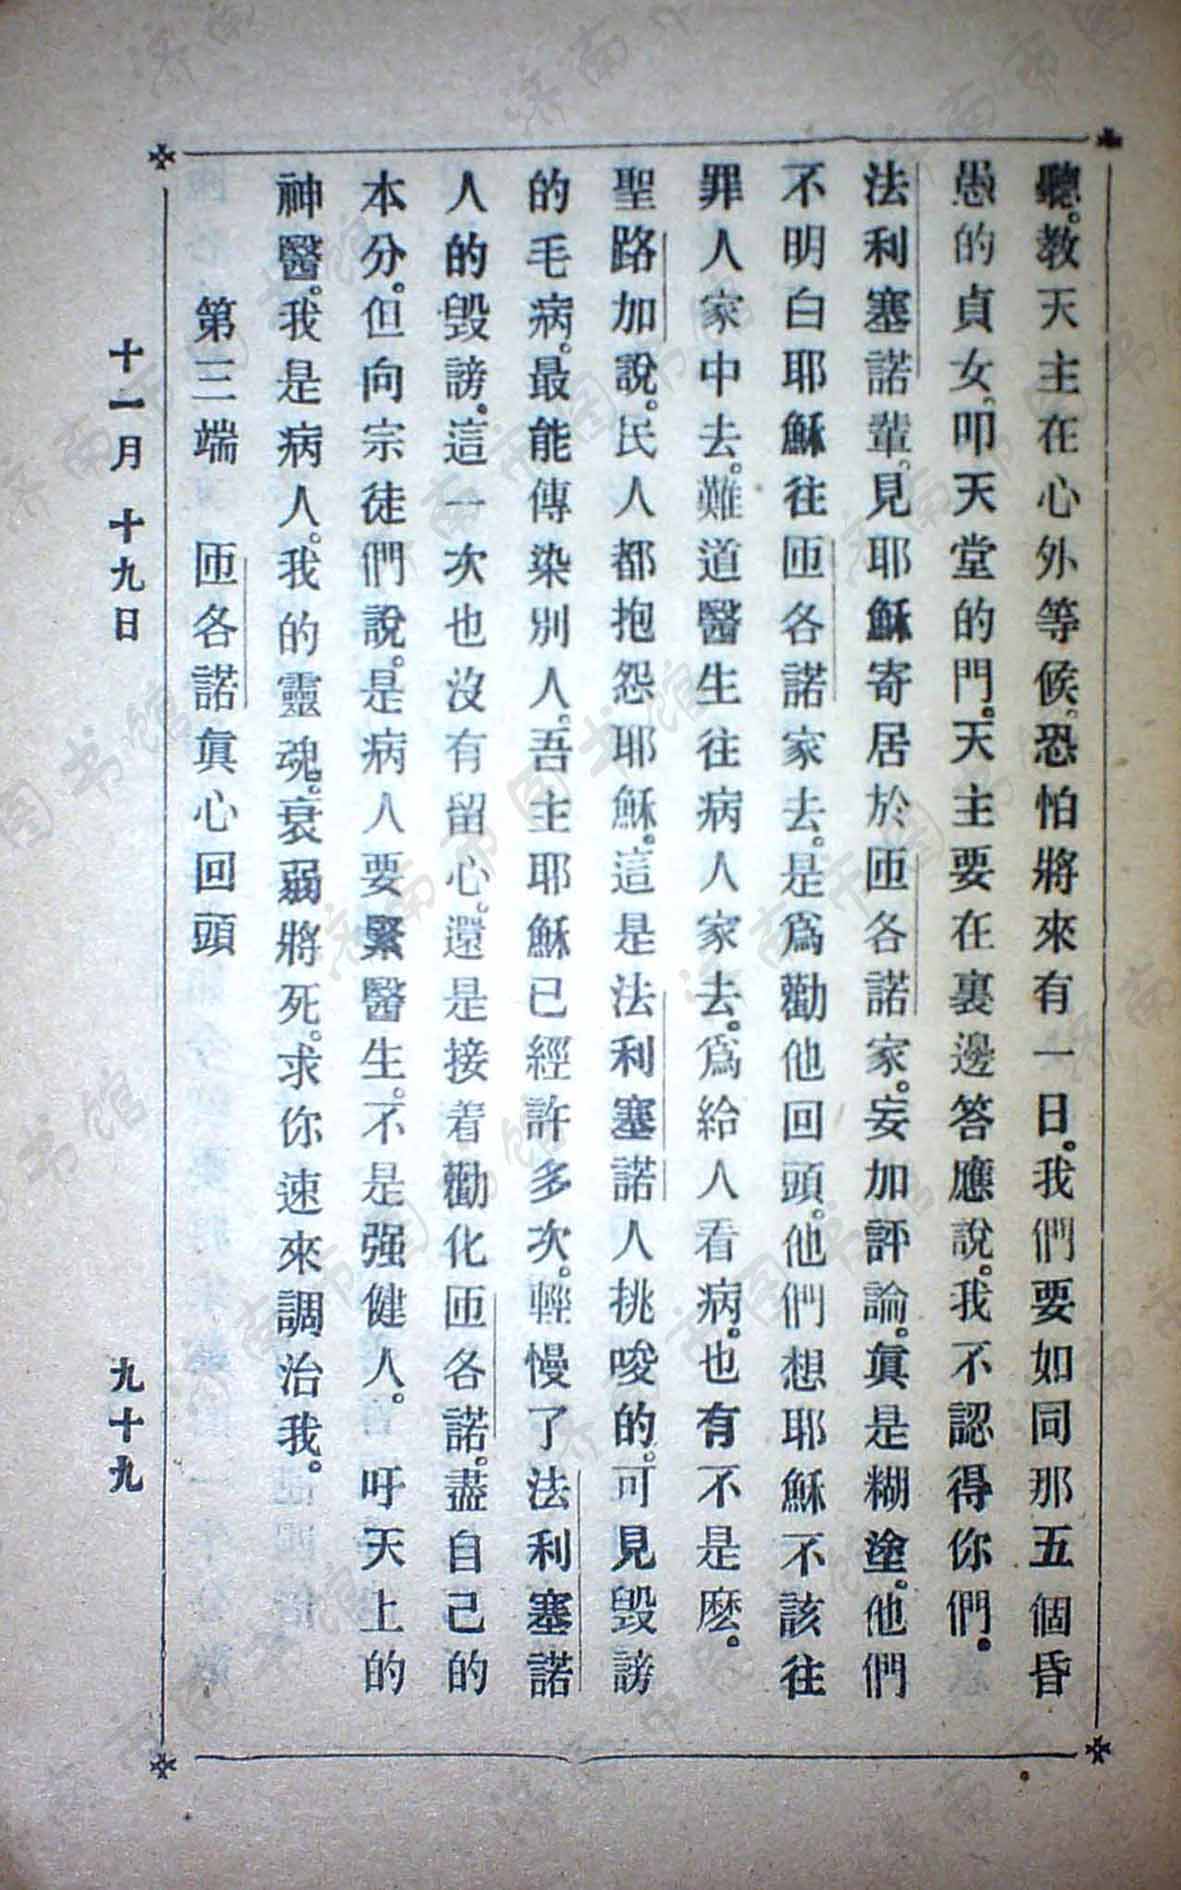 聽。教天主在心外等候。恐怕將來有一日。我們要如同那五個昏
愚的貞女。叩天堂的門。天主要在裏邊答應說。我不認得你們。
法利塞諾輩。見耶穌寄居於匝各諾家。妄加評論。眞是糊塗。他們
不明白耶穌往匝各諾家去。是爲勸他回頭。他們想耶穌不該往
罪人家中去。難道醫生往病人家去。爲給人看病。也有不是麽。
聖路加說。民人都抱怨耶穌。這是法利塞諾人挑唆的。可見毀謗
的毛病。最能傳染別人。吾主耶穌已經許多次。輕慢了法利塞諾
人的毀謗。這一次也沒有留心。還是接着勸化匝各諾。盡自己的
本分。但向宗徒們說。是病人要緊醫生。不是强健人。 吁天上的
神醫。我是病人。我的靈魂。衰弱將死。求你速來調治我。
第三端 匝各諾眞心回頭
十一月 十九日 九十九
济南市图书馆